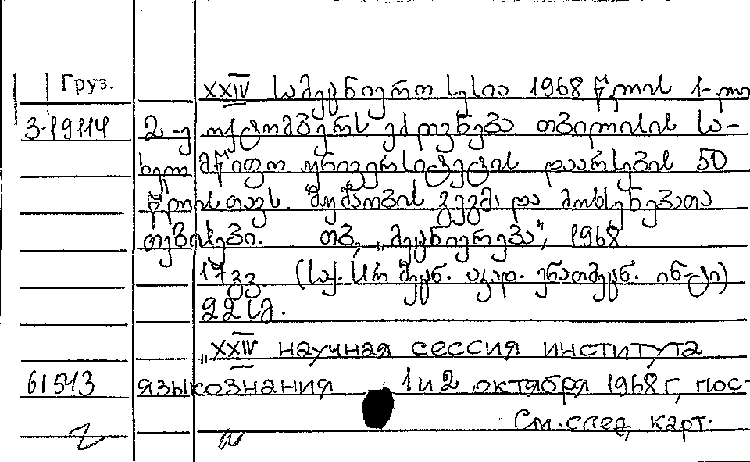 Груз. XXIV სამეცნიერო სესია 1968 წლის 1-ლი
3-19114 2-ე ოქტომბერს ეძღვნება თბილისის სა-
ხელმწიფო უნივერსიტეტის დაარსების 50
წლისთავს. მუშაობის გეგმა და მოხსენებათა
თეზისები. თბ., „მეცნიერება", 1968
17 გვ. (საქ. სსრ მეცნ. აკად. ენათმეცნ. ინ-ტი)
22 სმ.
„XXIV научная сессия института
61543 языкознания 1 и 2 октября 1968 г, пос-
См. след, карт.